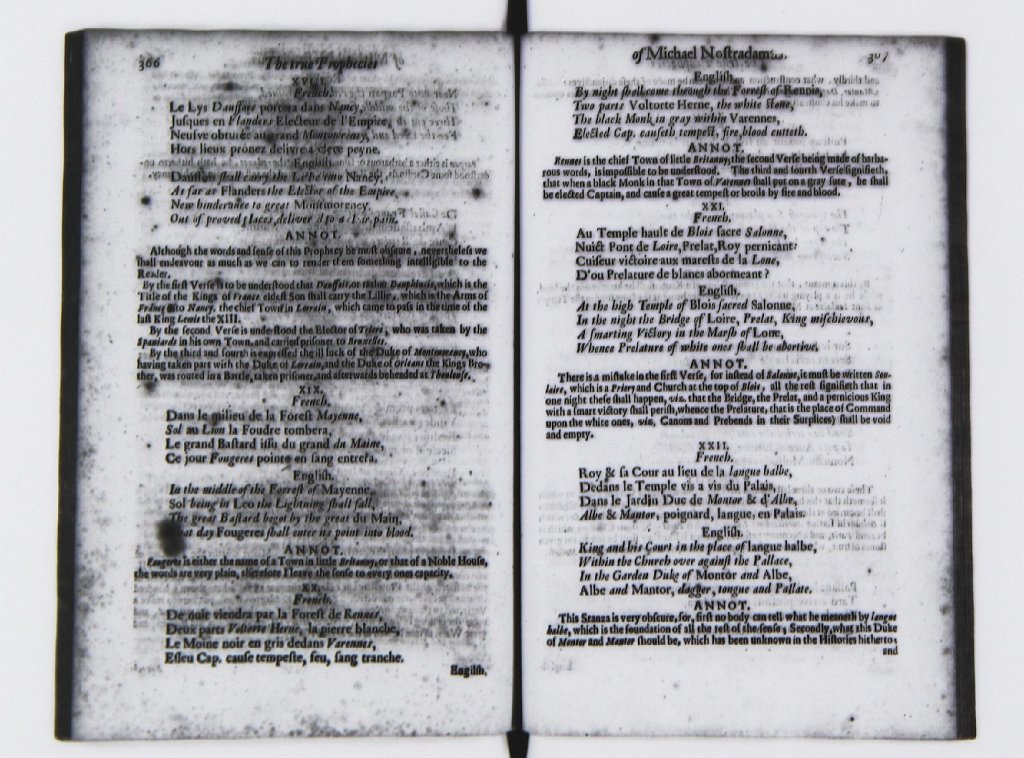 366 The true Prophecies
XVIII.
French.
Le Lys Dauffois portera dans Nancy,
Juſques en Flanders Electeur de l'Empire,
Neufve obturée au grand Montmorency,
Hors lieux pronez delivre a clere peyne.
English.
Dauffois ſhall carry the Lillie into Nancy,
As far as Flanders the Elector of the Empire,
New hinderance to great Montmorency,
Out of proved places, deliver'd to a clear pain.
ANNOT.
Although the words and ſenſe of this Prophecy be moſt obſcure, nevertheleſs we
ſhall endeavour as much as we can to render them ſomething intelligible to the
Reader.
By the firſt Verſe is to be underſtood that Dauffois, or rather Dauphinois, which is the
Title of the Kings of France eldeſt Son ſhall carry the Lillie, which is the Arms of
France into Nancy, the chief Town in Lorrain, which came to paſs in the time of the
laſt King Lewis the XIII.
By the ſecond Verſe is underſtood the Elector of Triers, who was taken by the
Spaniards in his own Town, and carried priſoner to Bruxelles.
By the third and fourth is expreſſed the ill luck of the Duke of Montmorency, who
having taken part with the Duke of Lorrain, and the Duke of Orleans the Kings Bro-
ther, was routed in a Battle, taken priſoner, and afterwards beheaded at Thoulouſe.
XIX.
French.
Dans le milieu de la Foreſt Mayenne,
Sol au Lion la Foudre tombera,
Le grand Baſtard iſſu du grand du Maine,
Ce jour Fougeres pointe en ſang entrera.
English.
In the middle of the Forreſt of Mayenne,
Sol being in Leo the Lightning ſhall fall,
The great Baſtard begot by the great du Main,
that day Fougeres ſhall enter its point into blood.
ANNOT.
Fougeres is either the name of a Town in little Britanny, or that of a Noble Houſe,
the words are very plain, therefore I leave the ſenſe to every ones capacity.
XX.
French.
De nuit viendra par la Foreſt de Rennes,
Deux parts Voltorte Herne, la pierre blanche,
Le Moine noir en gris dedans Varennes,
Eſleu Cap. cauſe tempeſte, feu, ſang tranche.
Engliſh,
of Michael Noſtradamus. 307
Engliſh.
By night ſhall come through the Forreſt of Rennes,
Two parts Voltorte Herne, the white ſtone,
The black Monk in gray within Varennes,
Elected Cap. cauſeth tempeſt, fire, blood cutteth.
ANNOT.
Rennes is the chief Town of little Britanny, the ſecond Verſe being made of barba-
rous words, is impoſſible to be underſtood. The third and fourth Verſe ſignifieth,
that when a black Monk in that Town of Varennes ſhall put on a gray ſute, he ſhall
be elected Captain, and cauſe a great tempeſt or broils by fire and blood.
XXI.
French.
Au Temple hault de Blois ſacre Salonne,
Nuict Pont de Loire, Prelat, Roy pernicant:
Cuiſeur victoire aux mareſts de la Lone,
D'ou Prelature de blancs abormeant?
Engliſh.
At the high Temple of Blois ſacred Salonne,
In the night the Bridge of Loire, Prelat, King miſchievous,
A ſmarting Victory in the Marſh of Lone,
Whence Prelature of white ones ſhall be abortive.
ANNOT.
There is a miſtake in the firſt Verſe, for inſtead of Salonne, it muſt be written Sou-
laire, which is a Priory and Church at the top of Blois, all the reſt ſignifieth that in
one night theſe ſhall happen, viz. that the Bridge, the Prelat, and a pernicious King
with a ſmart victory ſhall periſh, whence the Prelature, that is the place of Command
upon the white ones, viz. Canons and Prebends in their Surplices) ſhall be void
and empty.
XXII.
French.
Roy & ſa Cour au lieu de la langue halbe,
Dedans le Temple vis a vis du Palais,
Dans le Jardin Duc de Montor & d'Albe,
Albe & Mantor, poignard, langue, en Palais.
Engliſh.
King and his Court in the place of langue halbe,
Within the Church over againſt the Pallace,
In the Garden Duke of Montor and Albe,
Albe and Mantor, dagger, tongue and Pallate.
ANNOT.
This Stanza is very obſcure, for, firſt no body can tell what he meaneth by langue
halbe, which is the foundation of all the reſt of the ſenſe; Secondly, what this Duke
of Montor and Mantor ſhould be, which has been unknown in the Hiſtories hitherto:
and